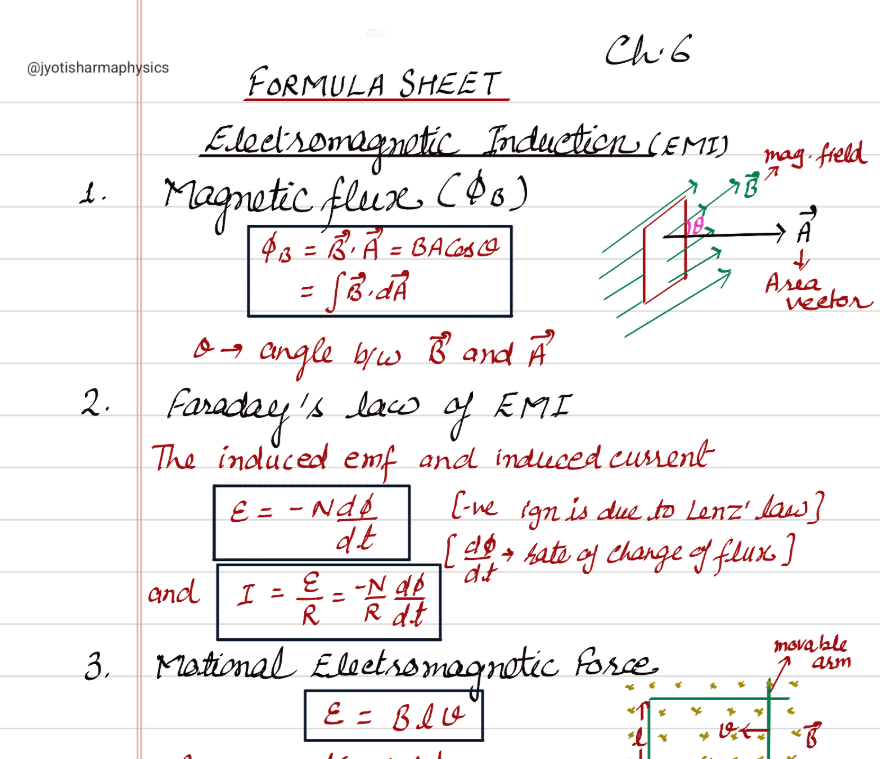 Ch. 6
@jyotisharmaphysics
FORMULA SHEET
Electromagnetic Induction (EMI)
1. Magnetic flux (ϕB)
mag. field
B⃗
θ
A⃗
Area
vector
ϕB = B⃗. A⃗ = BA Cosθ
= ∫B⃗.dA⃗
θ → angle b/w B⃗ and A⃗
2. Faraday's law of EMI
The induced emf and induced current
ε = - N dϕ/dt
[-ve ign is due to Lenz' law]
[dϕ/dt → rate of change of flux]
and I = ε/R = -N/R dϕ/dt
3. Motional Electromagnetic Force
movable
arm
ε = B l v
l
v
B⃗